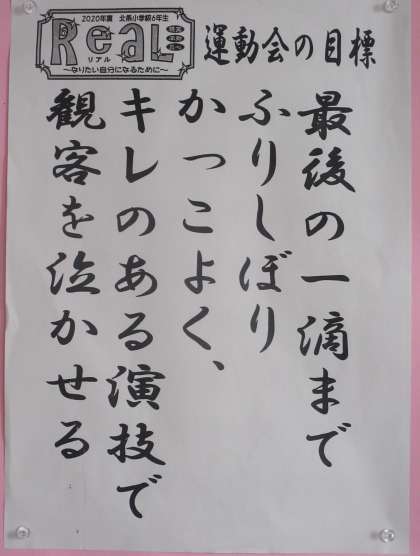 2020年度 北条小学校6年生
ReaL
リアル
～なりたい自分になるために～
運動会の目標
最後の一滴まで
ふりしぼり
かっこよく、
キレのある演技で
観客を泣かせる